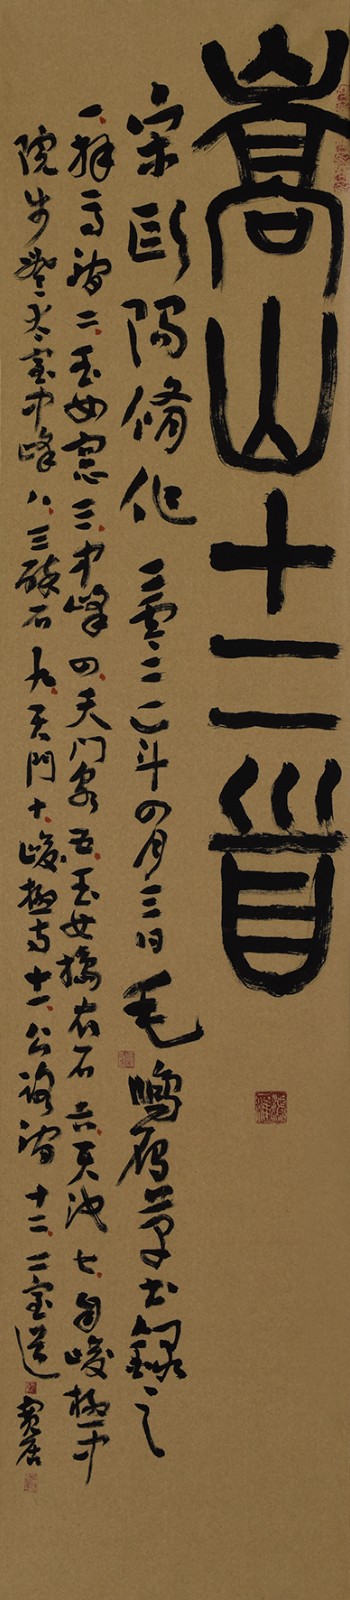 嵩山十二首
宋歐陽脩作 二零二一年四月三日 毛草書錄之
一拜馬澗二玉女窓三中峰四天門泉五玉女擣衣石六天池七自峻極中
院步登太室中峰八三醉石九天門十峻極寺十一公路澗十二二室道